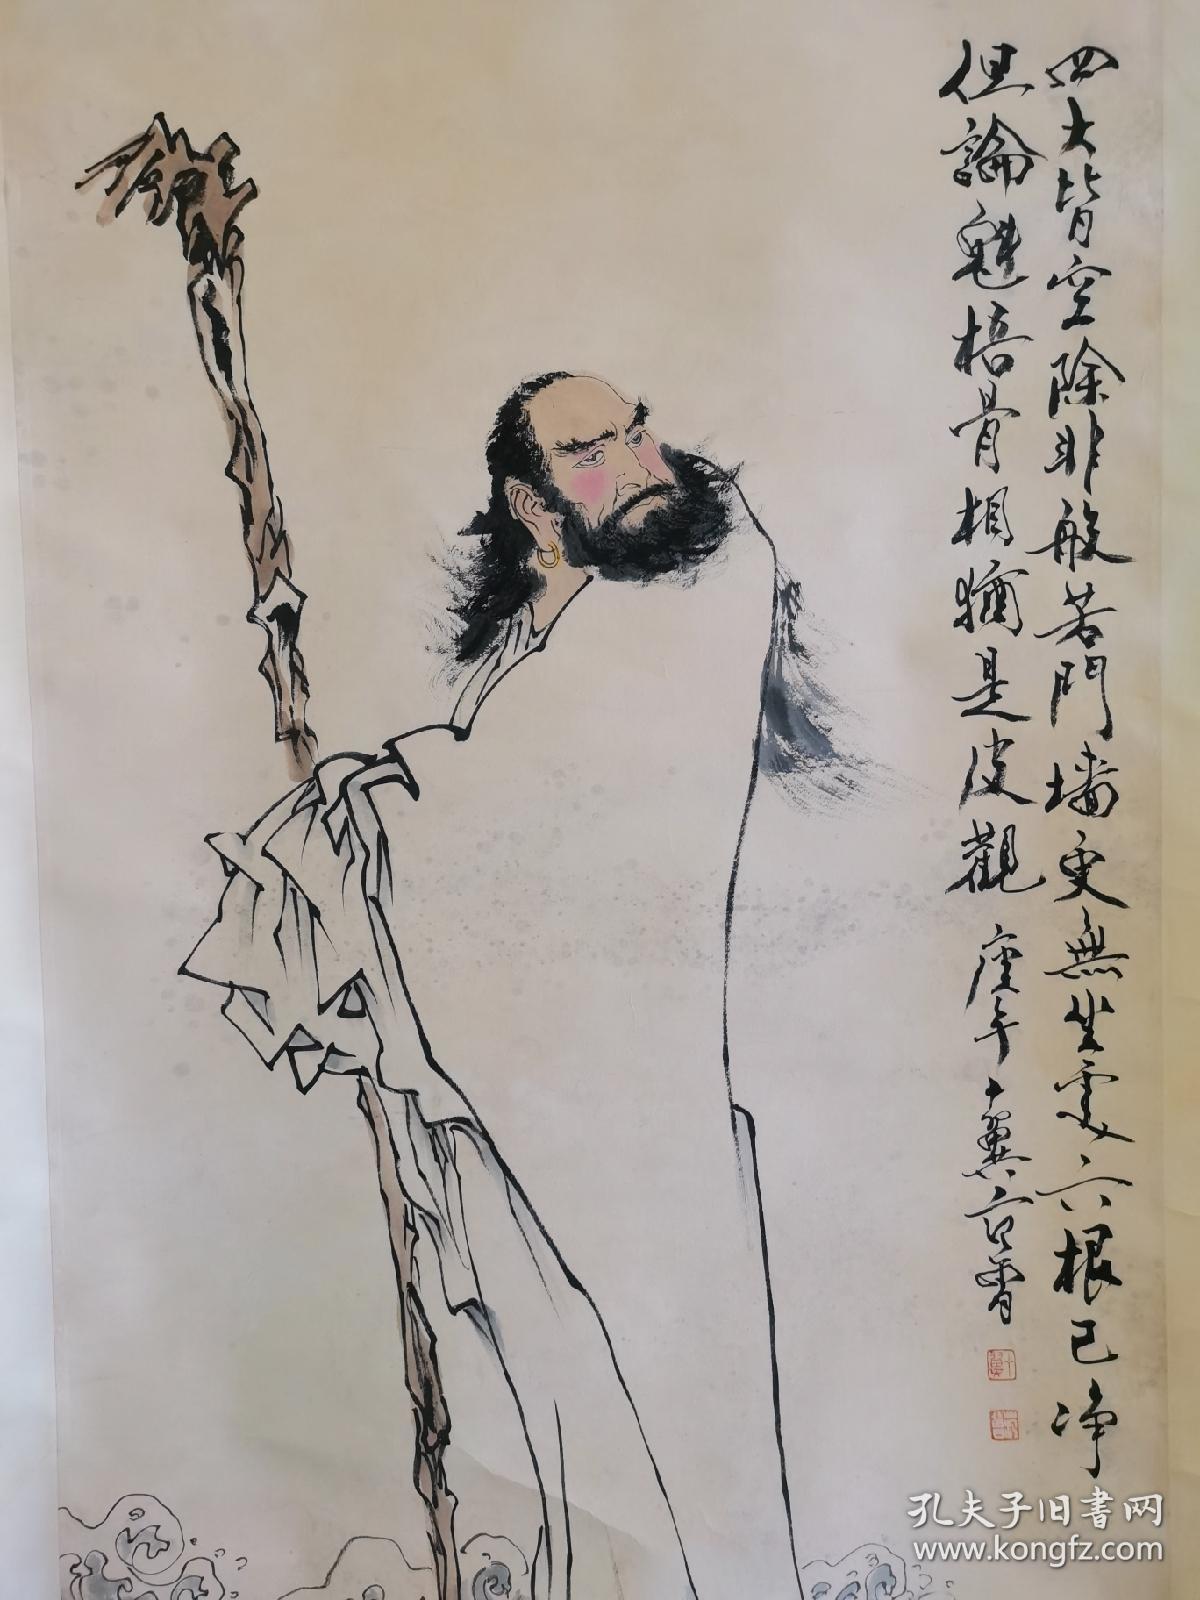 四大皆空除非般若門墙更無坐處六根已净
但論魁梧骨相猶是皮觀 庚午 十翼范曾
十翼
孔夫子旧书网
www.kongfz.com